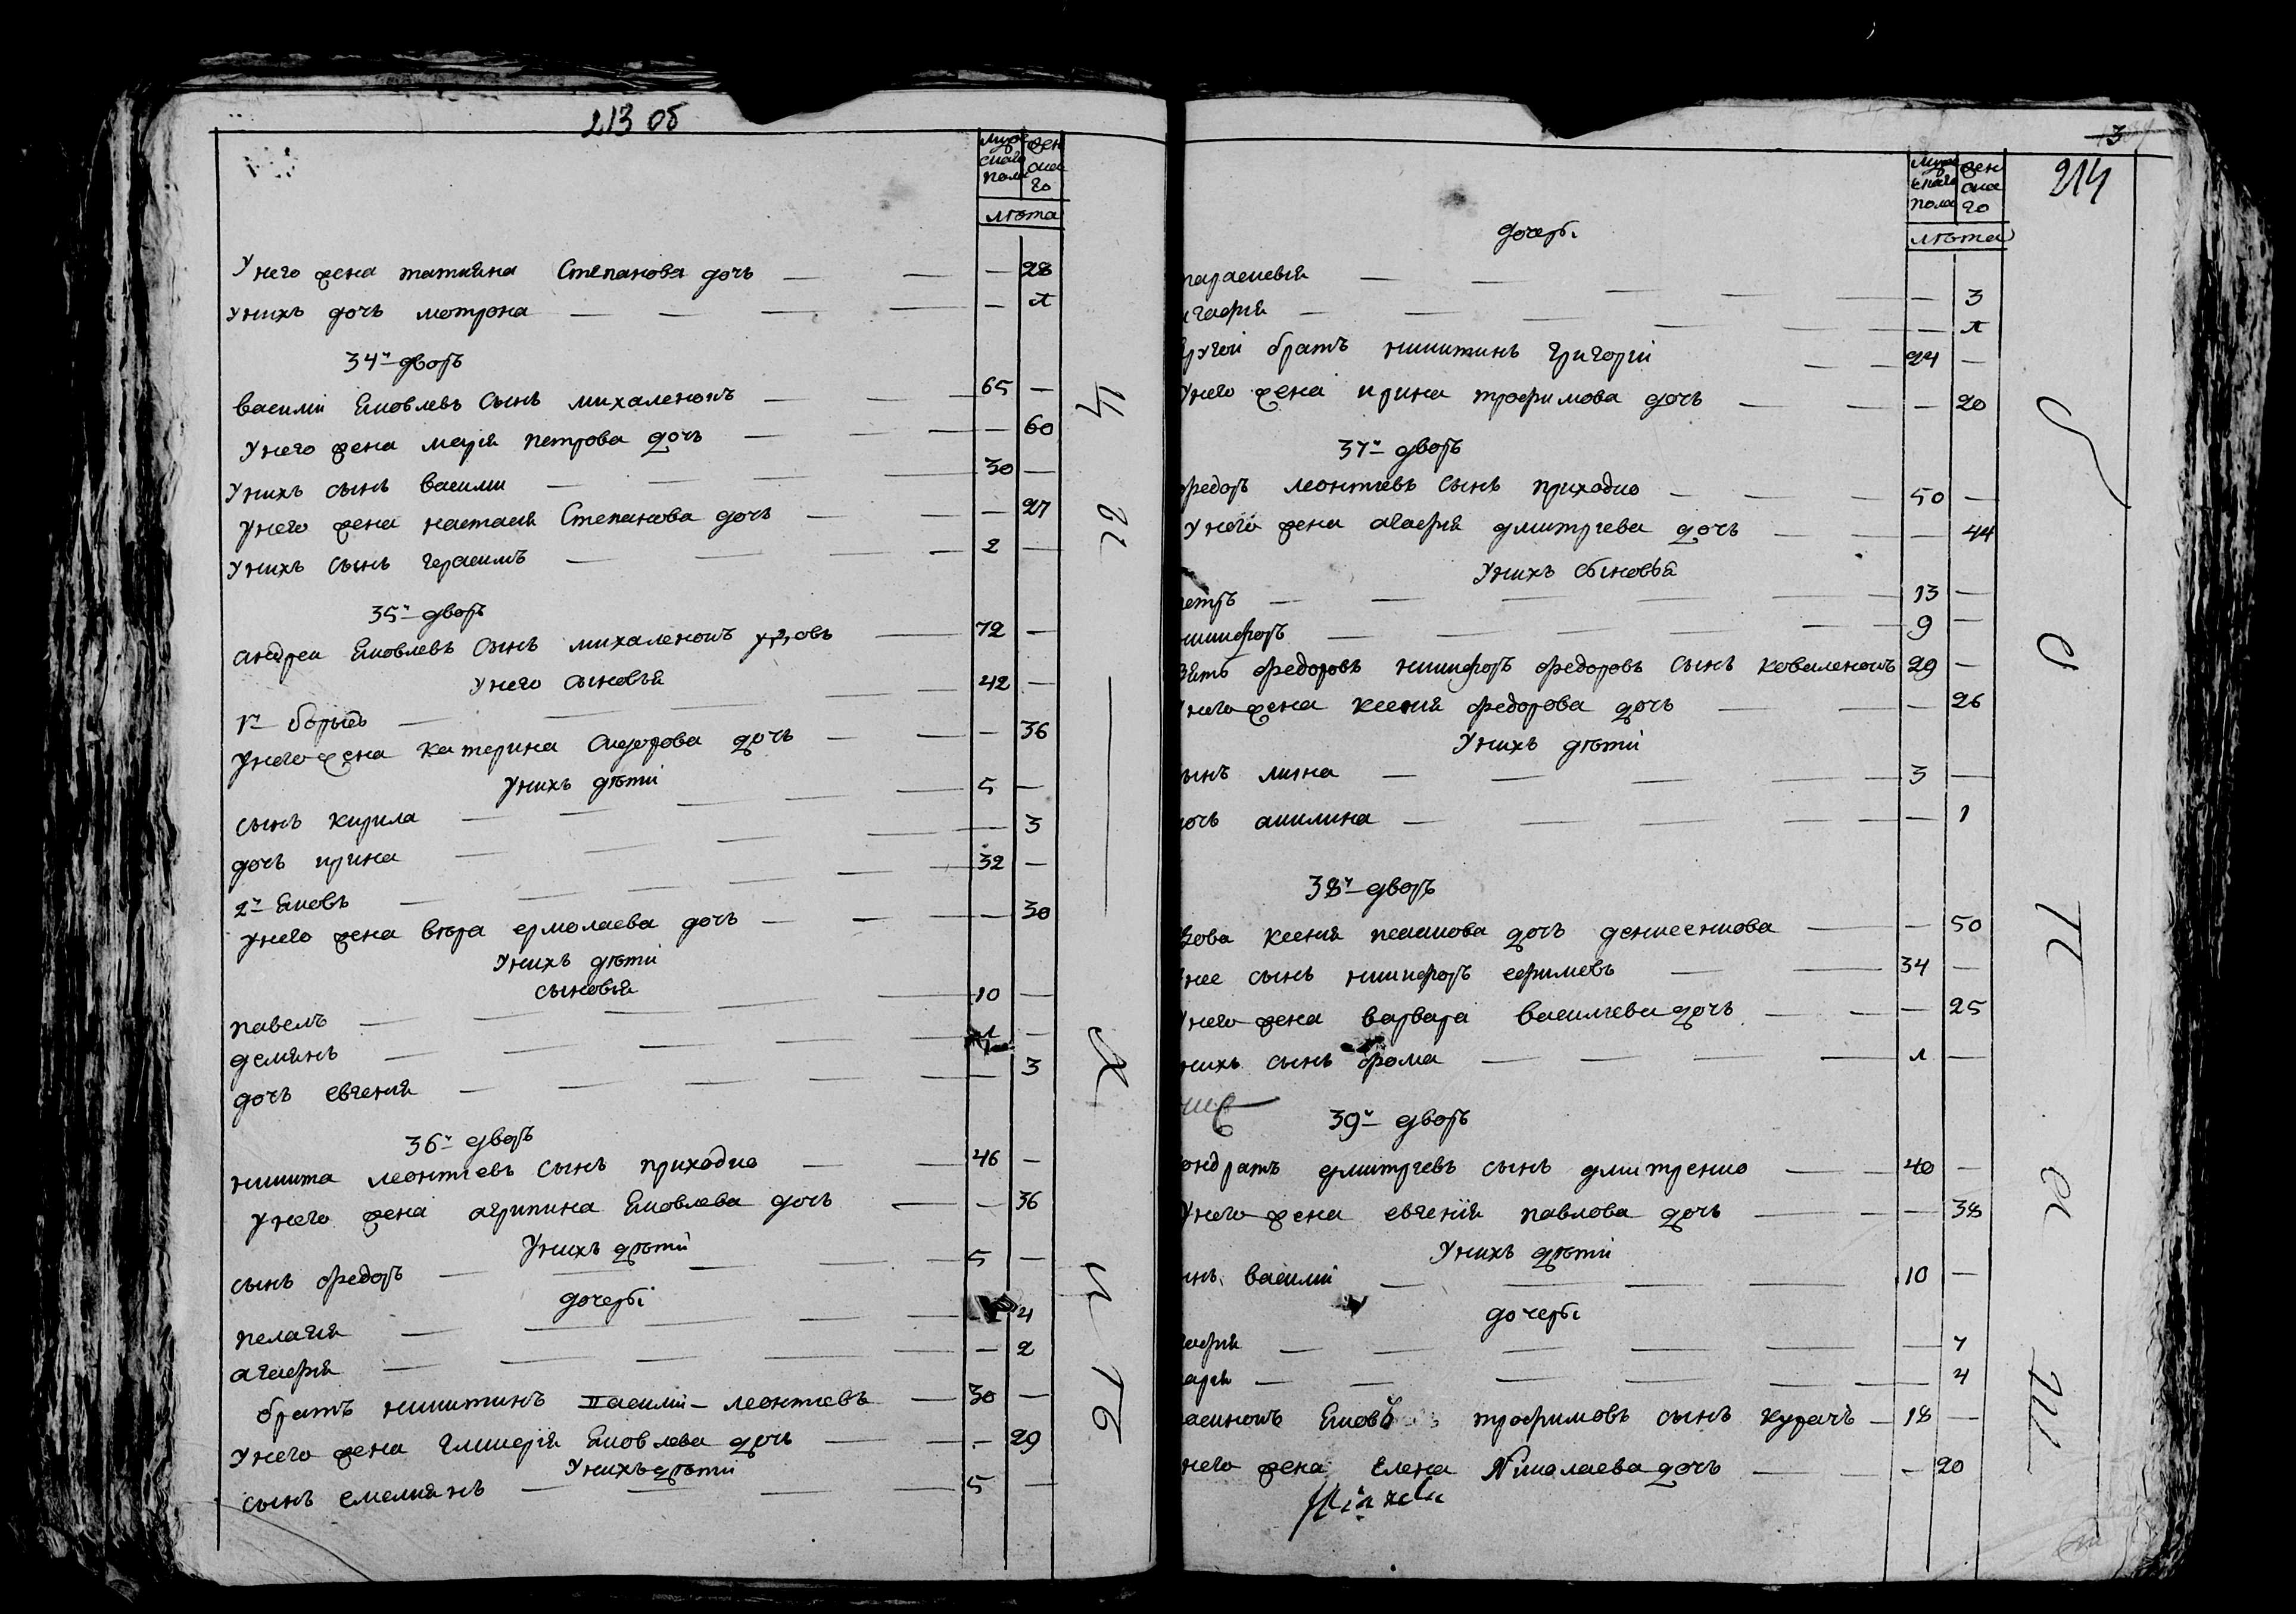 213 об
Муж
скаго
пола
жен
ска
го
лѣта
У него жена татияна Степанова дочь — — — 28
У нихъ дочь мотрона — — — — — л
34й дворъ
василий Яковлевъ Сынъ михаленокъ — — 65 —
У него жена мария петрова дочь — — — — 60
У нихъ сынъ василий — — — — 30 —
У него жена настасия Степанова дочь — — — 27
У нихъ сынъ герасимъ — — — — 2 —
35й дворъ
андреи Яковлевъ Сынъ михаленокъ вдовъ — 72 —
У него сыновья
1й борисъ — — — — — 42 —
У него жена катерина Сидорова дочь — — — 36
У нихъ дѣти
сынъ кирила — — — — — 5 —
дочь ирина — — — — — — 3
2й Яковъ — — — — — 32 —
У него жена вѣра ермолаева дочь — — — — 30
У нихъ дѣти
сыновья
павелъ — — — — — 10 —
демянъ — — — — — —
дочь евгения — — — — — — 3
36й дворъ
никита леонтиевъ Сынъ приходко — — 46 —
У него жена агрипина Яковлева дочь — — 36
У нихъ дѣти
сынъ федоръ — — — — — 5 —
дочери
пелагия — — — — — 4
агафия — — — — — — 2
братъ никитинъ Василий леонтиевъ — 30 —
У него жена гликерия Яковлева дочь — — — 29
У нихъ дѣти
сынъ емелиянъ — — — — 5 —
Ц
и
Х
и
ТЬ
3
214
Муж
скаго
пола
жен
ска
го
лѣта
дочери
параскевия — — — — — — 3
агафия — — — — — — — л
другои братъ никитинъ Григории — — 24 —
У него жена ирина трофимова дочь — — — 20
37й дворъ
федоръ леонтиевъ Сынъ приходко — — — 50 —
У него жена агафия дмитриева дочь — — — 44
У нихъ сыновья
петръ — — — — — 13 —
никифоръ — — — — — 9 —
зять федоровъ никифоръ федоровъ сынъ коваленокъ 29 —
У него жена ксения федорова дочь — — — 26
У нихъ дѣти
сынъ лукна — — — — — 3 —
дочь акилина — — — — — — 1
38й дворъ
вдова ксения дочь денисенкова — — 50
У нее сынъ никифоръ ефимовъ — — 34 —
У него жена варвара василиева дочь — — — 25
У нихъ сынъ фома — — — — л —
39й дворъ
кондратъ дмитриевъ сынъ дмитренко — — 40 —
У него жена евгения павлова дочь — — — 38
У нихъ дѣти
сынъ василий — — — — 10 —
дочери
агафия — — — — — — 7
мария — — — — — — 4
Яковъ трофимовъ сынъ кухачъ — 18 —
У него жена Елена Николаева дочь — — — 20